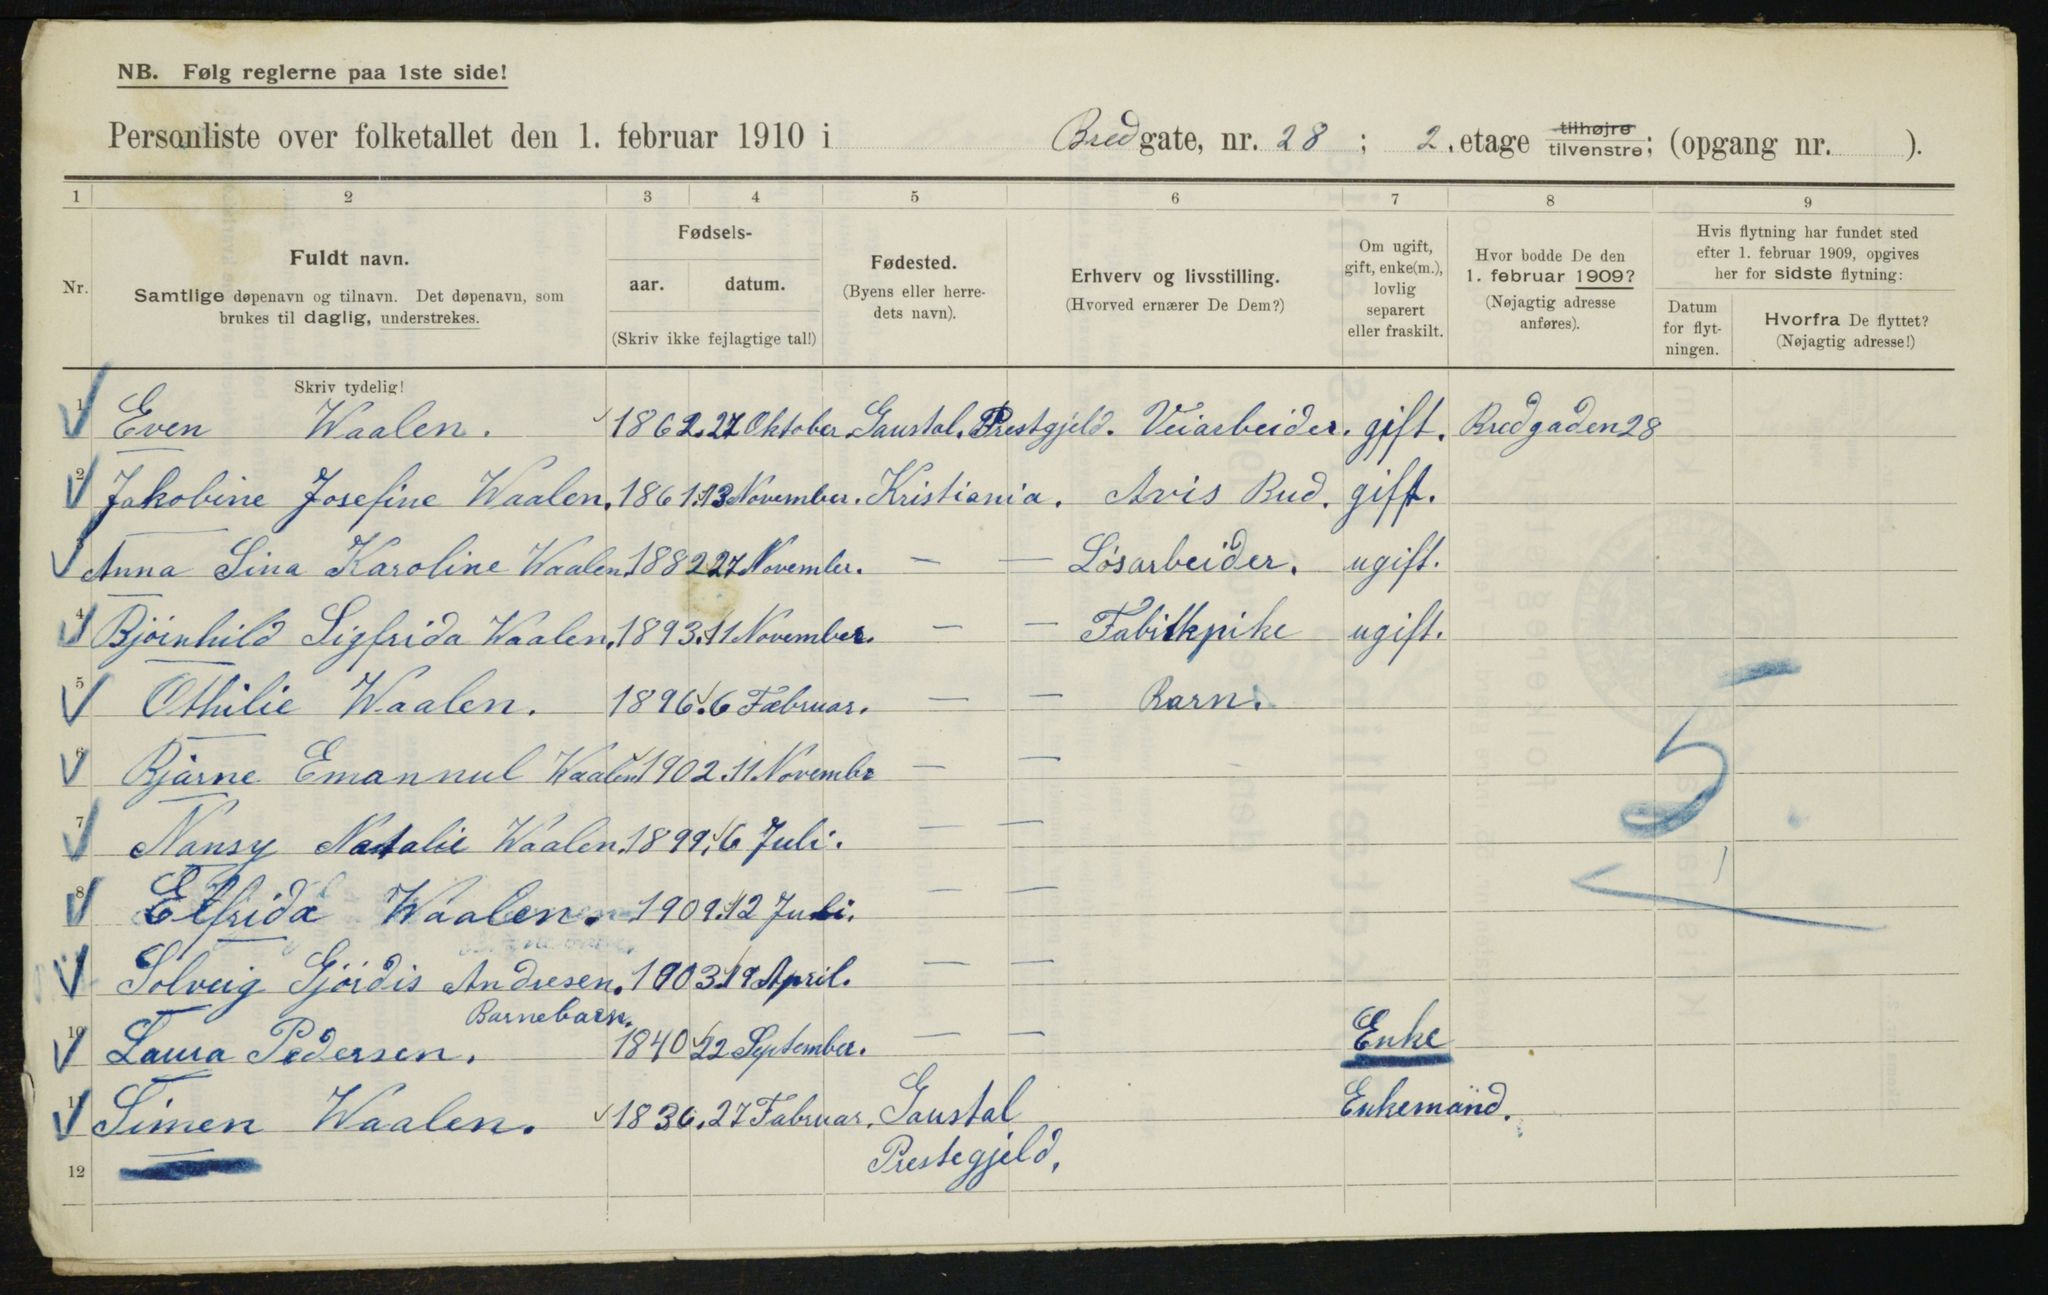 NB. Følg reglerne paa 1ste side!
Personliste over folketallet den 1. februar 1910 i Bredgate, nr. 28; 2. etage tilhøjre tilvenstre; (opgang nr. ).
1 2 3 4 5 6 7 8 9
Nr.
Fuldt navn.
Samtlige døpenavn og tilnavn. Det døpenavn, som
brukes til daglig, understrekes.
Fødsels-
aar. datum.
(Skriv ikke fejlagtige tal!)
Fødested.
(Byens eller herre-
dets navn).
Erhverv og livsstilling.
(Hvorved ernærer De Dem?)
Om ugift,
gift, enke(m.),
lovlig
separert
eller fraskilt.
Hvor bodde De den
1. februar 1909?
(Nøjagtig adresse
anføres).
Hvis flytning har fundet sted
efter 1. februar 1909, opgives
her for sidste flytning:
Datum
for flyt-
ningen.
Hvorfra De flyttet?
(Nøjagtig adresse!)
Skriv tydelig!
1 Even Waalen. 1862. 27 Oktober. Gaustal. Prestgjeld. Veiarbeider. gift. Bredgaden 28
2 Jakobine Josefine Waalen. 1861. 13 November. Kristiania. Avis Bud. gift.
3 Anna Lina Karoline Waalen. 1882 27 November. — — Løsarbeider. ugift.
4 Bjørnhild Sigfrida Waalen. 1893. 11 November. — — Fabrikpike ugift.
5 Othilie Waalen. 1896. 6 Fæbruar. — — Barn.
6 Bjarne Emannul Waalen 1902. 11 Novembr — —
7 Nansy Natalie Waalen. 1899. 6 Juli. — —
8 Elfrida Waalen. 1909. 12 Juli. — —
9 Solveig Gjördis Andresen. 1903. 19 April. — —
Barnebarn.
10 Laura Pedersen. 1840 22 September. — — Enke
11 Simen Waalen. 1836. 27 Fabruar. Gaustal Enkemand.
Prestegjeld.
12
5